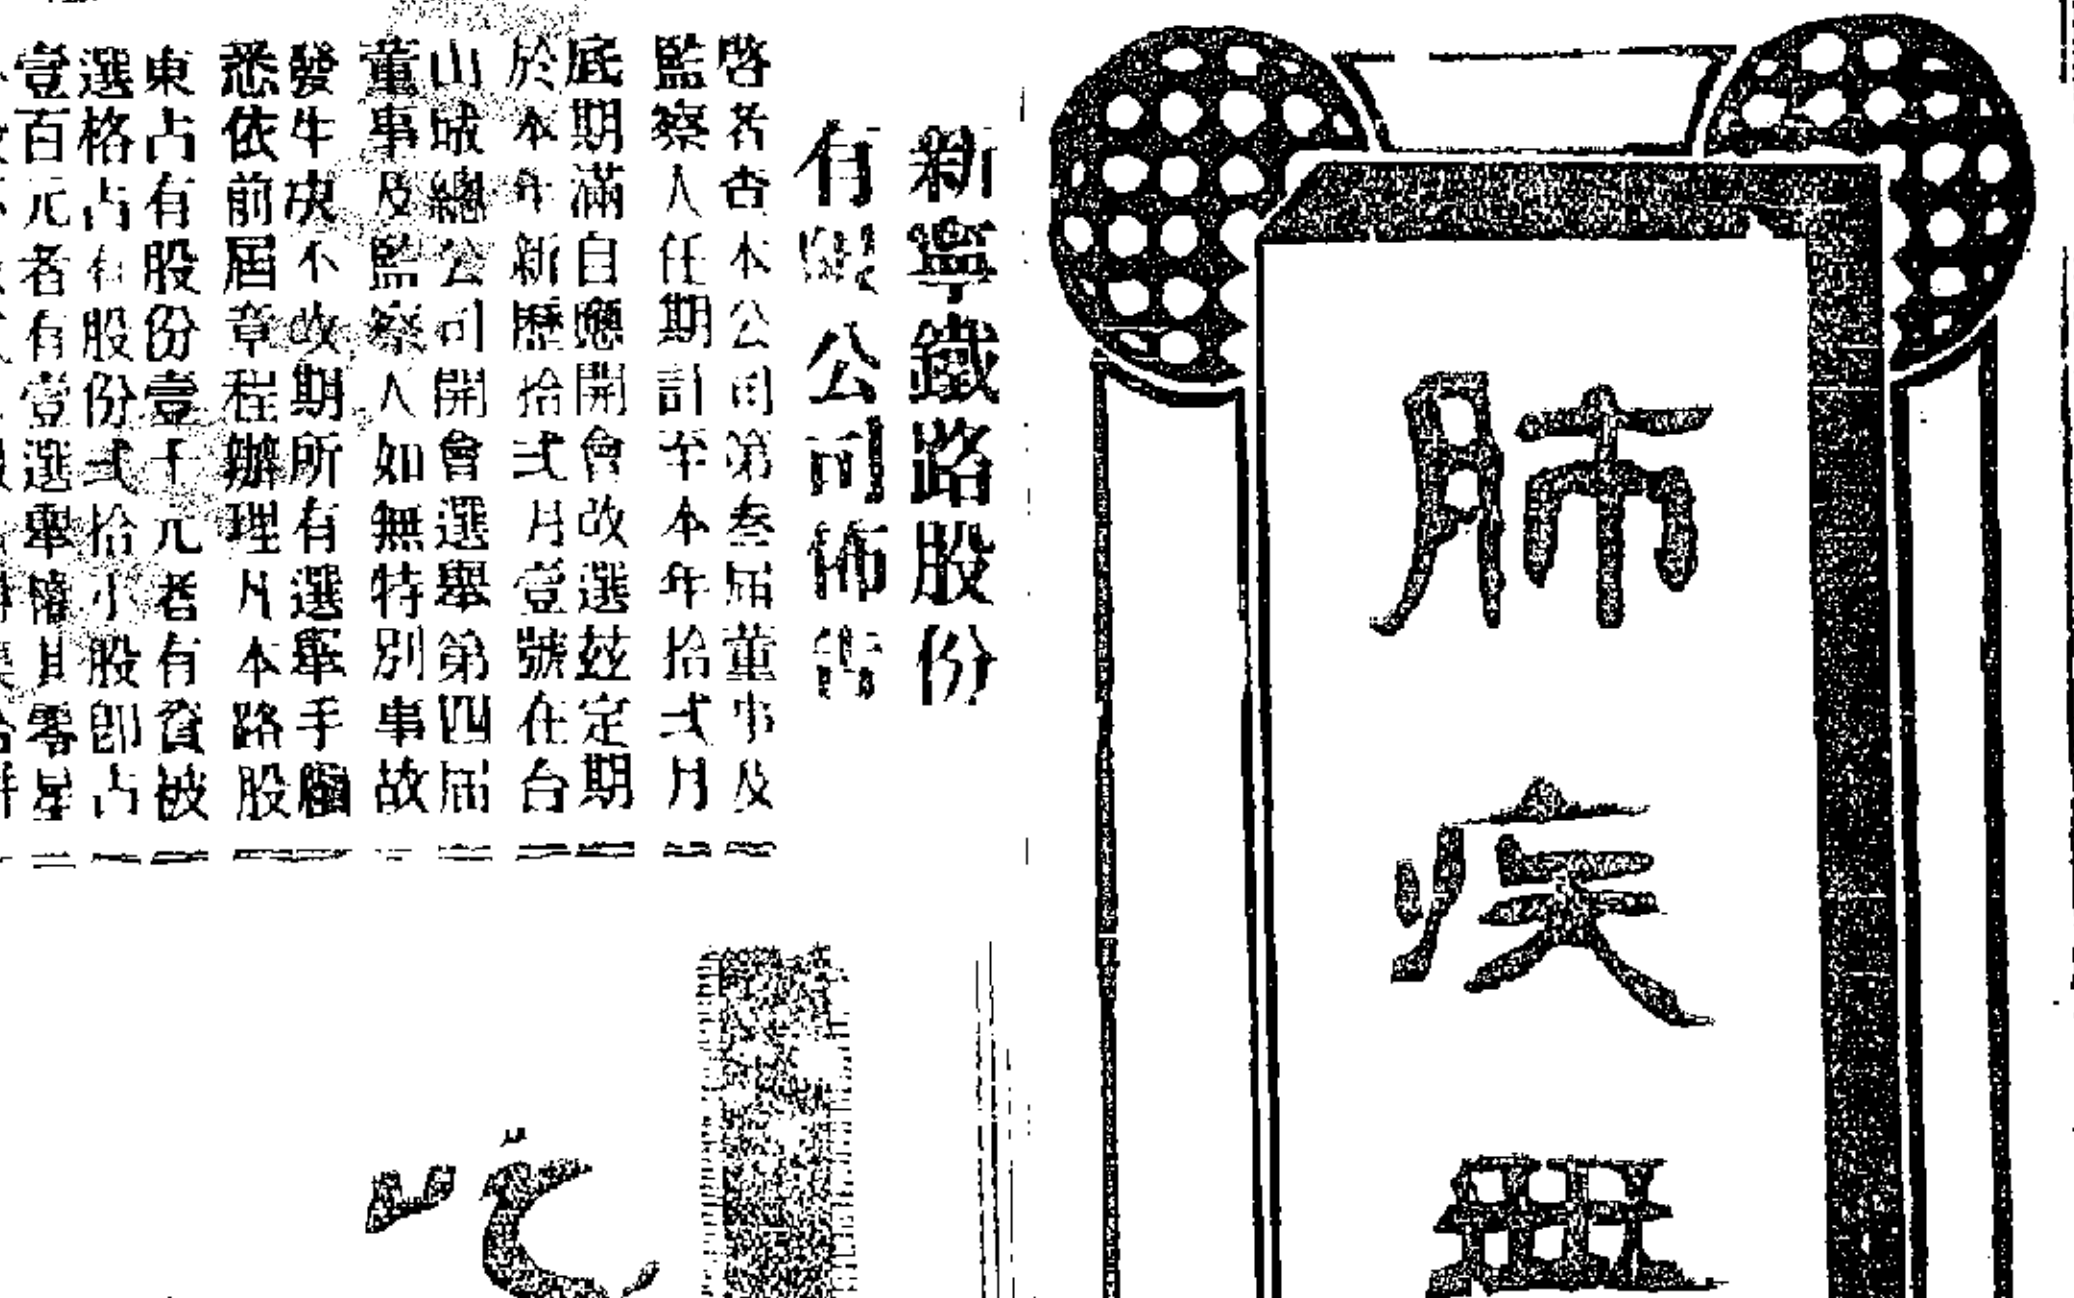 肺疾無
新寧鐵路股份
有限公司佈告
啓者查本公司第叁届董事及
監察人任期計至本年拾弍月
底期滿自應開會改選茲定期
於本年新歷拾弍月壹號在台
山城總公司開會選舉第四届
董事及監察人如無特別事故
發生决不改期所有選舉手續
悉依前屆章程辦理凡本路股
東占有股份壹千元者有資被
選格占有股份弍拾小股卽占
壹百元者有壹選舉權其零星